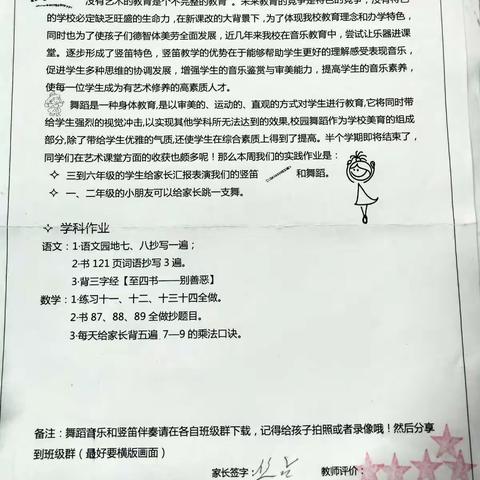 没有艺术的教育是个不完整的教育"。未来教育的竞争是特色的竞争，没有特色
的学校必定缺乏旺盛的生命力，在新课改的大背景下，为了体现我校教育理念和办学特色，
同时也为了使孩子们德智体美劳全面发展，近几年来我校在音乐教育中，尝试让乐器进课
堂。逐步形成了竖笛特色，竖笛教学的优势在于能够帮助学生更好的理解感受表现音乐，
促进学生多种思维的协调发展，增强学生的音乐鉴赏与审美能力，提高学生的音乐素养，
使每一位学生成为有艺术修养的高素质人才。
舞蹈是一种身体教育，是以审美的、运动的、直观的方式对学生进行教育，它将同时带
给学生强烈的视觉冲击，以实现其他学科所无法达到的效果，校园舞蹈作为学校美育的组成
部分，除了带给学生优雅的气质，还使学生在综合素质上得到了提高。半个学期即将结束了，
同学们在艺术课堂方面的收获也颇多呢！那么本周我们的实践作业是：
三到六年级的学生给家长汇报表演我们的竖笛 和舞蹈。
一、二年级的小朋友可以给家长跳一支舞。
学科作业
语文：1·语文园地七、八抄写一遍；
2·书 121 页词语抄写 3 遍。
3·背三字经【至四书——别善恶】
数学：1·练习十一、十二、十三十四全做。
2·书 87、88、89 全做抄题目。
3·每天给家长背五遍 7—9 的乘法口诀。
备注：舞蹈音乐和竖笛伴奏请在各自班级群下载，记得给孩子拍照或者录像哦！然后分享
到班级群（最好要横版画面）
家长签字： 教师评价：